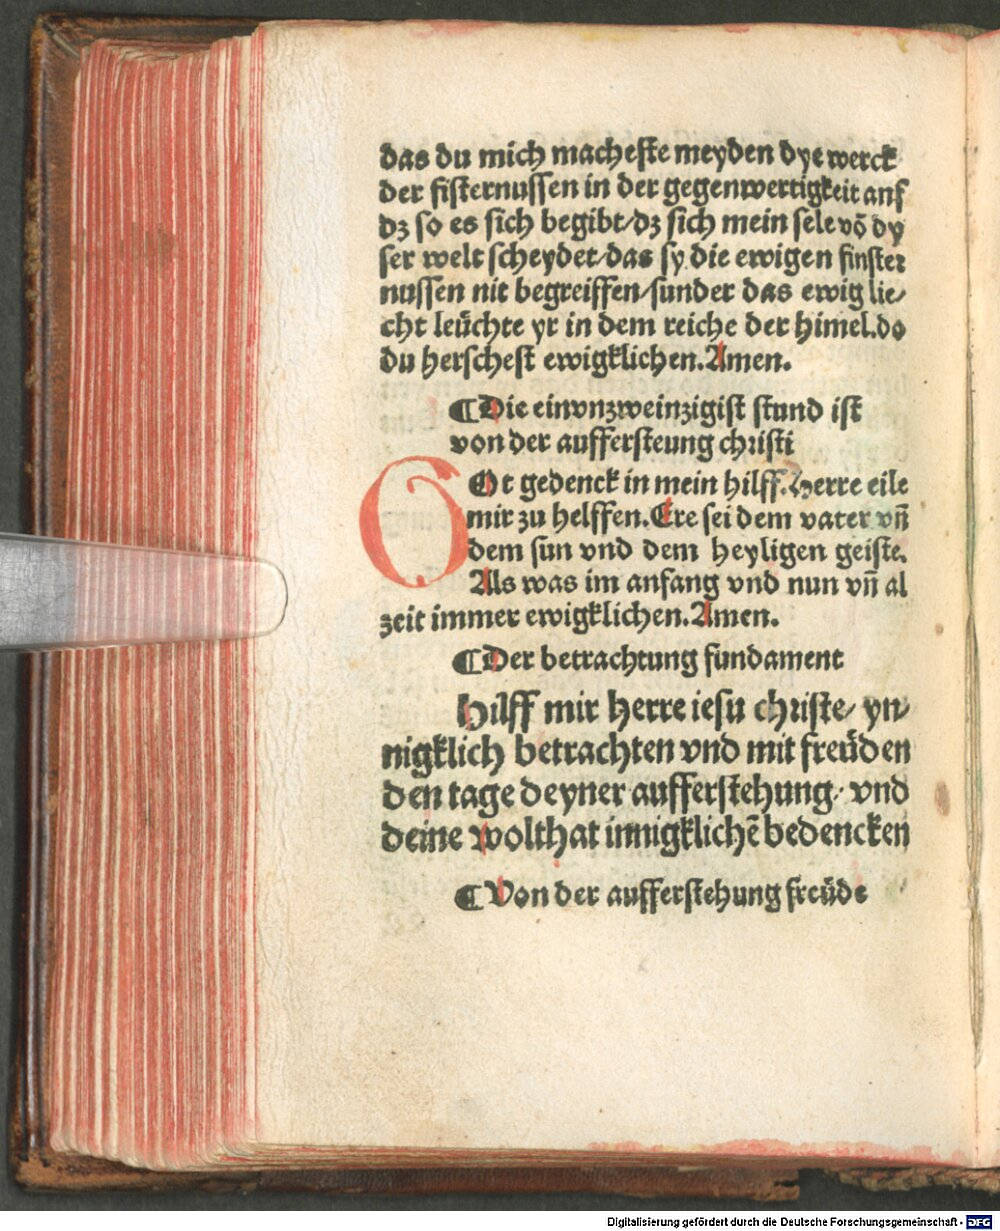 das du mich macheſte meyden dye werck
der fiſternuſſen in der gegenwertigkeit anf
dz ſo es ſich begibt/dz ſich mein ſele vō dy
ſer welt ſcheydet/das ſy die ewigen finſter
nuſſen nit begreiffen/ſunder das ewig lie/
cht leüchte yr in dem reiche der himel.do
du herſcheſt ewigklichen.Amen.
¶Die einvnzweinzigiſt ſtund iſt
von der aufferſteung chriſti
GOt gedenck in mein hilff.Herre eile
mir zu helffen.Ere ſei dem vater vn̄
dem ſun vnd dem heyligen geiſte.
Als was im anfang vnd nun vn̄ al
zeit immer ewigklichen.Amen.
¶Der betrachtung fundament
Hilff mir herre ieſu chriſte/ yn/
nigklich betrachten vnd mit freüden
den tage deyner aufferſtehung/ vnd
deine wolthat innigklichē bedencken
¶Von der aufferſtehung freüde
Digitalisierung gefördert durch die Deutsche Forschungsgemeinschaft - DFG